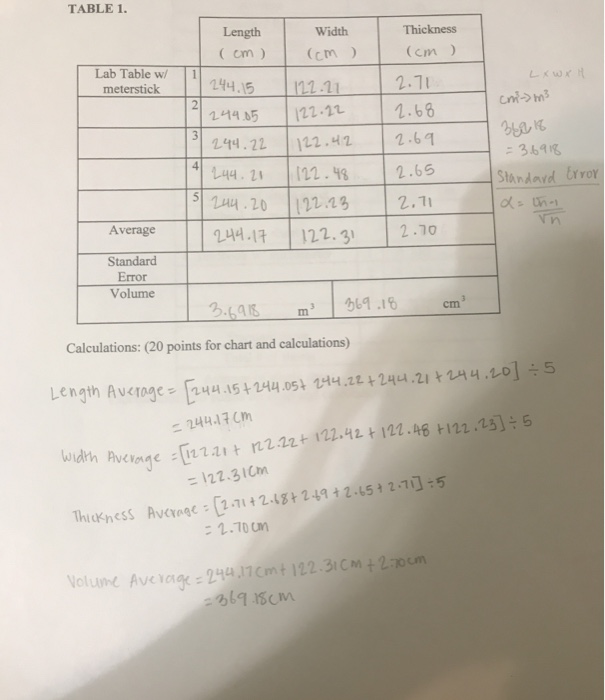 TABLE 1.
Length Width Thickness
( cm ) (cm ) (cm )
Lab Table w/ meterstick 1 244.15 122.21 2.71
2 244.05 122.22 2.68
3 244.22 122.42 2.69
4 244.21 122.48 2.65
5 244.20 122.23 2.71
Average 244.17 122.31 2.70
Standard Error
Volume 3.6918 m³ 369.18 cm³
L x W x H
cm³->m³
= 3.6918
Standard Error
α = σn-1 / √n
Calculations: (20 points for chart and calculations)
Length Average = [244.15 + 244.05 + 244.22 + 244.21 + 244.20] ÷ 5
= 244.17 cm
Width Average = [122.21 + 122.22 + 122.42 + 122.48 + 122.23] ÷ 5
= 122.31cm
Thickness Average = [2.71 + 2.68 + 2.69 + 2.65 + 2.71] ÷ 5
= 2.70 cm
Volume Average = 244.17cm + 122.31cm + 2.70cm
= 369.18cm